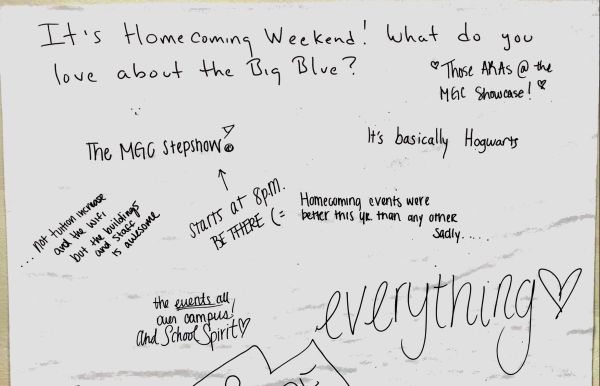 It's Homecoming Weekend! What do you
love about the Big Blue?
♡Those AKAs @ the
MGC Showcase!♡
The MGC Stepshow!
It's basically Hogwarts
starts at 8pm.
BE THERE (=
Homecoming events were
better this yr. than any other
sadly.....
...not tuition increase
and the wifi
but the buildings
and staff
is awesome
the events all
over campus!
and School Spirit♡
everything♡